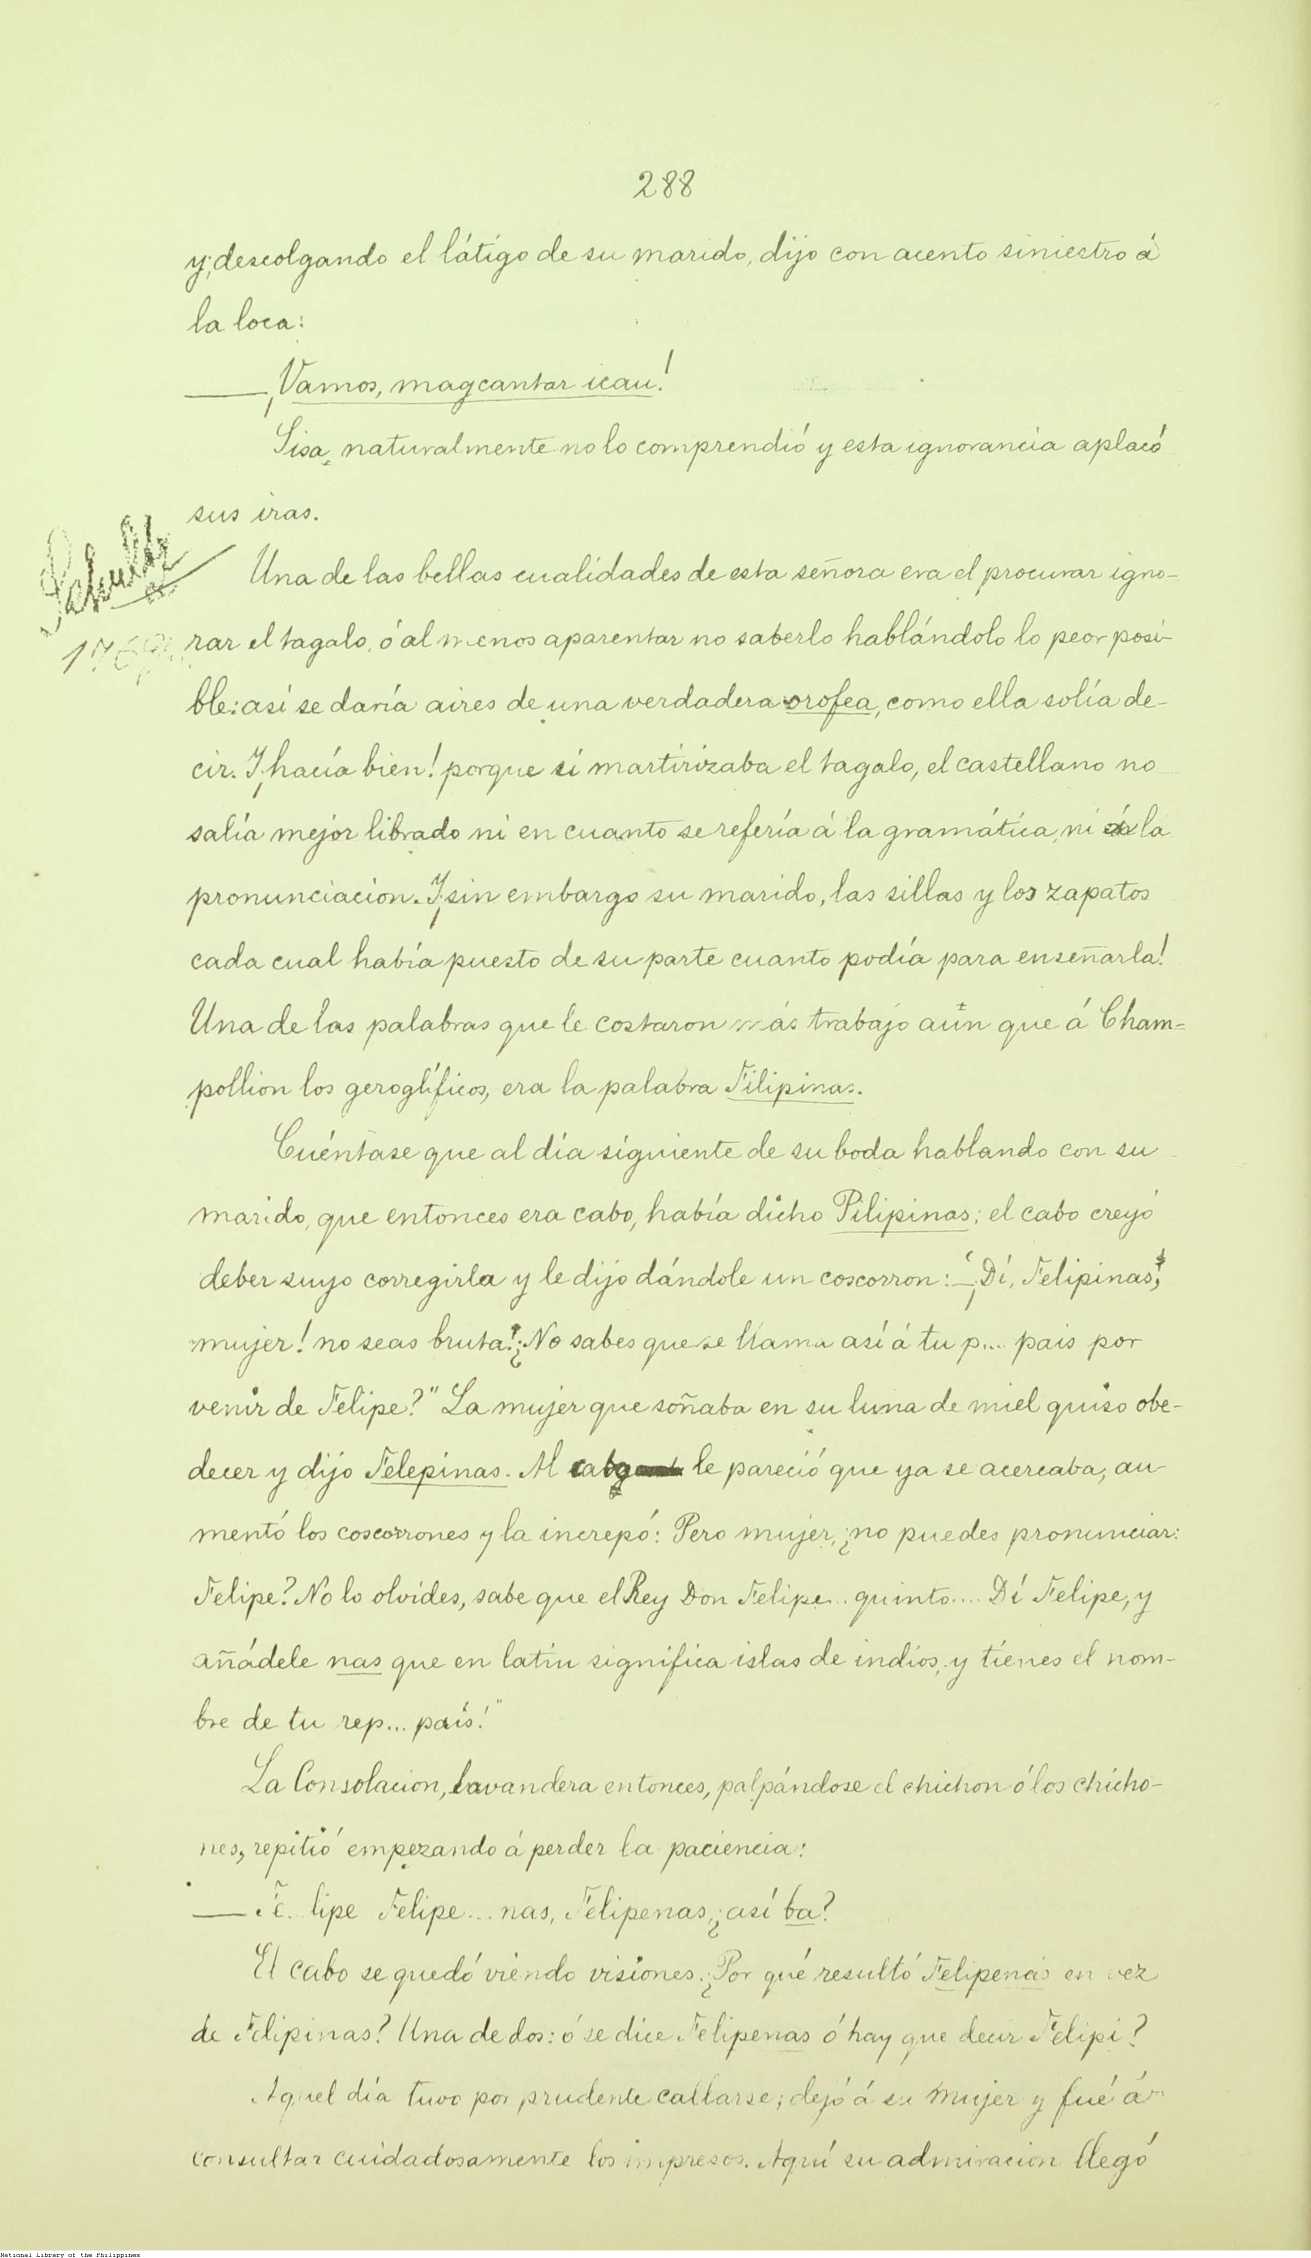 288
y, descolgando el látigo de su marido, dijo con acento siniestro á
la loca:
—¡Vamos, magcantar icau!
Sisa, naturalmente no lo comprendió y esta ignorancia aplacó
sus iras.
Schultz
Una de las bellas cualidades de esta señora era el procurar igno-
rar el tagalo, ó al menos aparentar no saberlo hablándolo lo peor posi-
ble: así se daría aires de una verdadera orofea, como ella solía de-
cir. Y ¡hacía bien! porque si martirizaba el tagalo, el castellano no
salía mejor librado ni en cuanto se refería á la gramática, ni á la
pronunciacion. Y ¡sin embargo su marido, las sillas y los zapatos
cada cual había puesto de su parte cuanto podía para enseñarla!
Una de las palabras que le costaron más trabajo aun que á Cham-
pollion los geroglíficos, era la palabra Filipinas.
Cuéntase que al día siguiente de su boda hablando con su
marido, que entonces era cabo, había dicho Pilipinas; el cabo creyó
deber suyo corregirla y le dijo dándole un coscorron: —¡Dí, Felipinas,
mujer! no seas bruta! ¿No sabes que se llama así á tu p... pais por
venir de Felipe?" La mujer que soñaba en su luna de miel quiso obe-
decer y dijo Felepinas. Al cabo le pareció que ya se acercaba, au-
mentó los coscorrones y la increpó: Pero mujer, ¿no puedes pronunciar:
Felipe? No lo olvides, sabe que el Rey Don Felipe... quinto.... Dí Felipe, y
añádele nas que en latin significa islas de indios, y tienes el nom-
bre de tu rep... país!"
La Consolacion, lavandera entonces, palpándose el chichon ó los chicho-
nes, repitió empezando á perder la paciencia:
—Fe.. lipe Felipe... nas, Felipenas, ¿así ba?
El cabo se quedó viendo visiones. ¿Por qué resultó Felipenas en vez
de Felipinas? Una de dos: ó se dice Felipenas ó hay que decir Felipi?
Aquel día tuvo por prudente callarse; dejó á su mujer y fué á
consultar cuidadosamente los impresos. Aquí su admiracion llegó
National Library of the Philippines